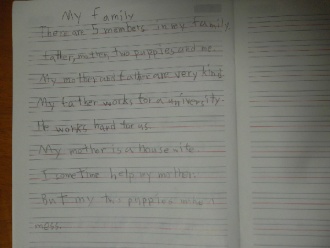 My family
There are 5 members in my family,
father, mother, two puppies and me.
My mother and father are very kind.
My father works for a university.
He works hard for us.
My mother is a house wife.
I sometime help my mother.
But my two puppies make a
mess.